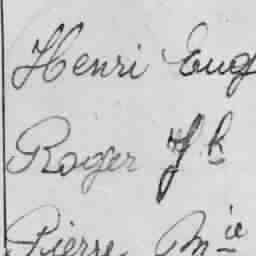 Henri Eug
Roger J h
Pierre M ie